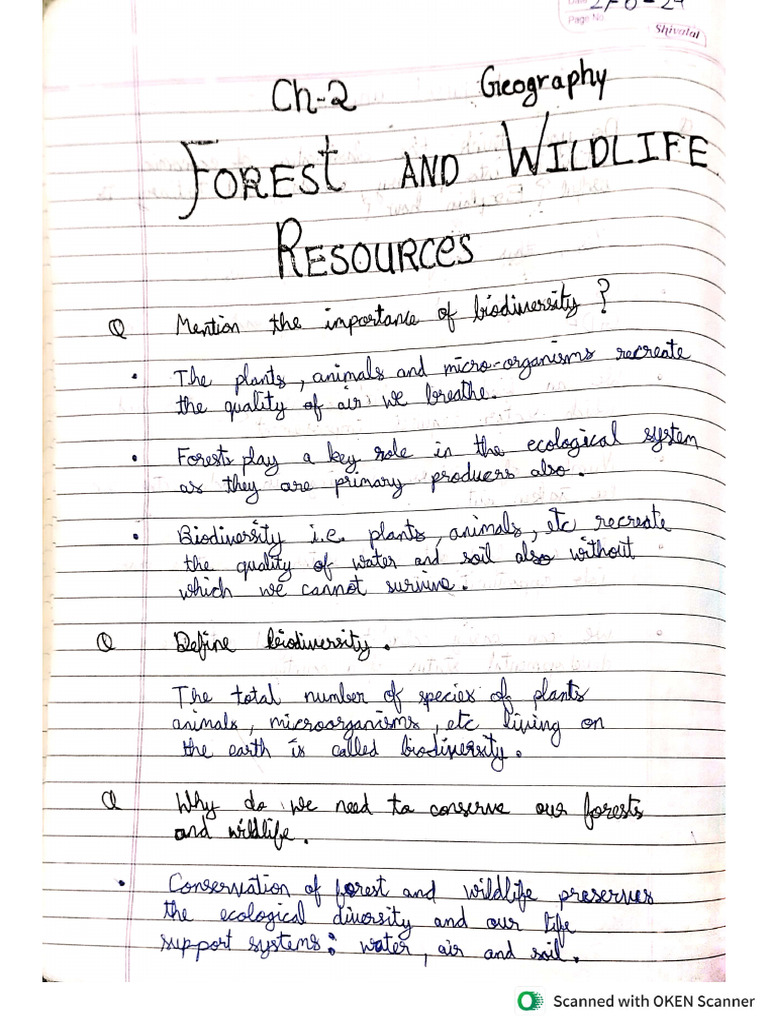 Page No.
Shivalal
Ch-2 Geography
FOREST AND WILDLIFE
RESOURCES
Q Mention the importance of biodiversity ?
• The plants, animals and micro-organisms recreate
the quality of air we breathe.
• Forests play a key role in the ecological system
as they are primary producers also.
• Biodiversity i.e. plants, animals, etc recreate
the quality of water and soil also without
which we cannot survive.
Q Define biodiversity.
The total number of species of plants
animals, microorganisms, etc living on
the earth is called biodiversity.
Q Why do we need to conserve our forests
and wildlife.
• Conservation of forest and wildlife preserves
the ecological diversity and our life
support systems: water, air and soil.
Scanned with OKEN Scanner